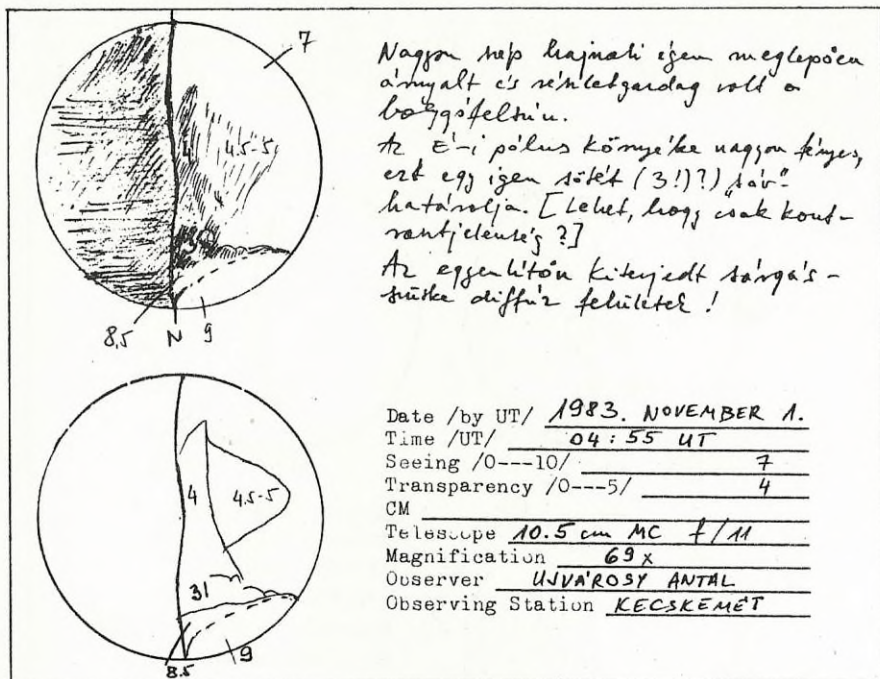 7
Nagyon szép hajnali égen meglepően
árnyalt és részletgazdag volt a
bolygófelszín.
Az É-i pólus környéke nagyon fényes,
ezt egy igen sötét (3!)?) "sáv"
határolja. [Lehet, hogy csak kont-
rasztjelenség?]
Az egyenlítőn kiterjedt sárgás-
szürke diffúz felületek!
4
4.5-5
3
8,5
N
9
Date /by UT/ 1983. NOVEMBER 1.
Time /UT/ 04:55 UT
Seeing /0---10/ 7
Transparency /0---5/ 4
CM
Telescope 10.5 cm MC f/11
Magnification 69x
Observer UJVÁROSY ANTAL
Observing Station KECSKEMÉT
4
4.5-5
3!
8.5
9